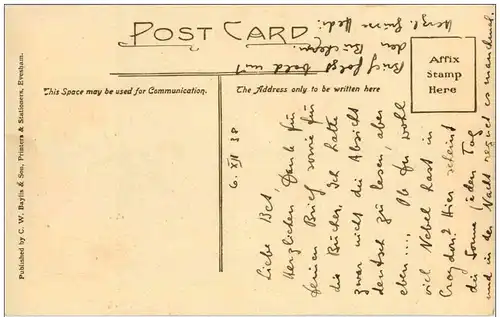 POST CARD
This Space may be used for Communication.
The Address only to be written here
Affix
Stamp
Here
Published by C. W. Baylis & Son, Printers & Stationers, Evesham.
6. XII 38
Liebe Bet,
Herzlichen Dank für
Deinen Brief sowie für
die Bücher. Ich hatte
zwar nicht die Absicht
deutsch zu lesen, aber
eben..... Ob Du wohl
viel Nebel hast in
Croydon? Hier scheint
die Sonne jeden Tag
und in der Nacht regnet es manchmal.
Brief folgt bald mit
den Büchern.
Herzl. Grüsse Hedi